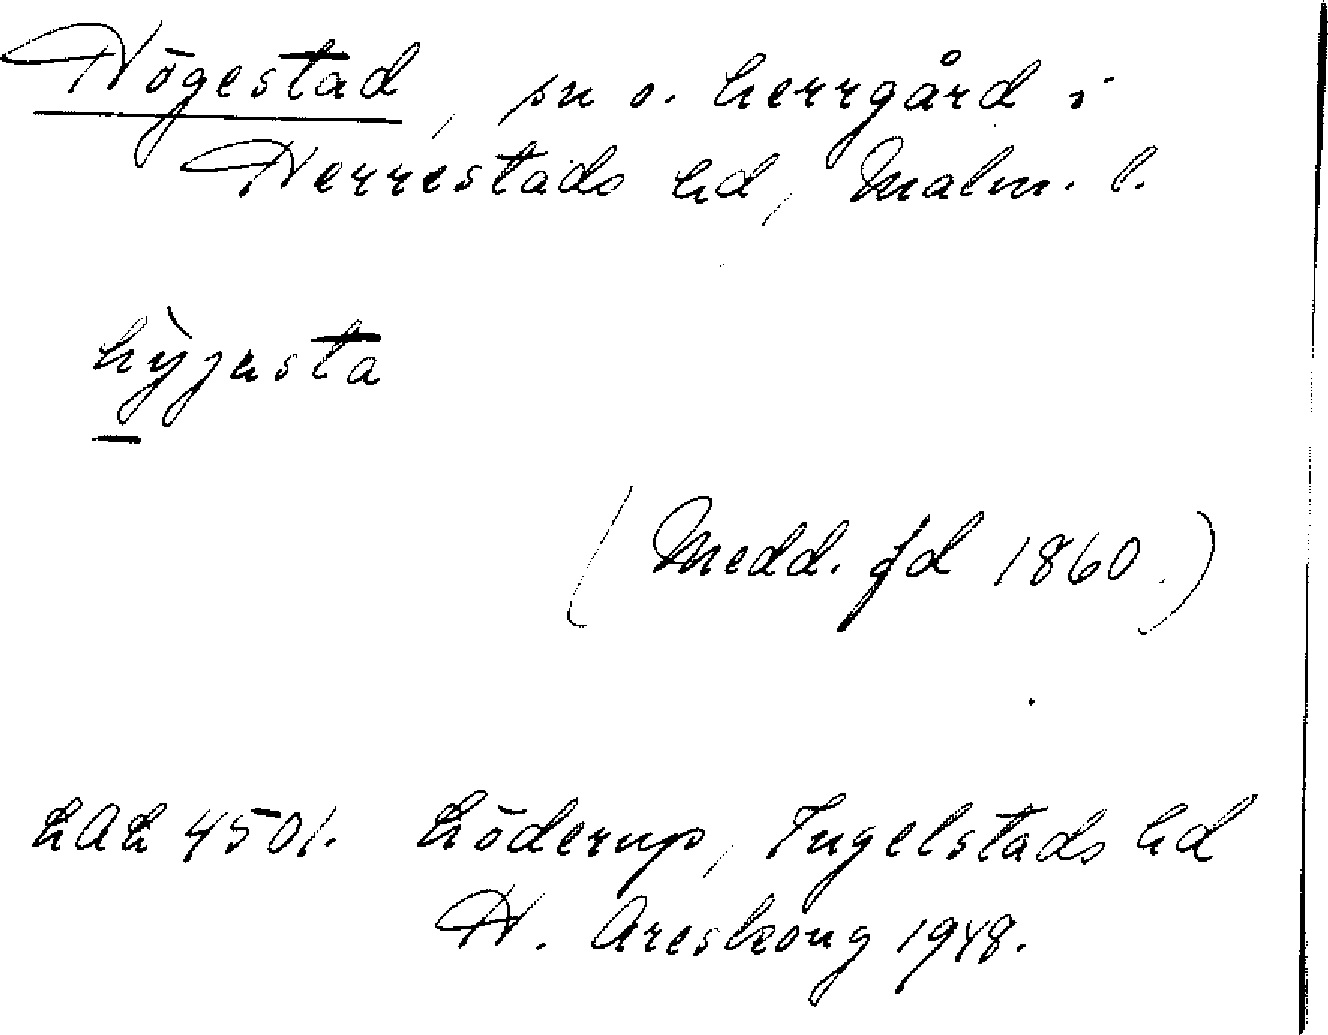 Högestad, sn o. herrgård i
Herrestads hd, Malm. l.
hỳjasta
(Medd. fd 1860.)
LAL 4501. Löderup, Ingelstads hd
H. Areskoug 1948.